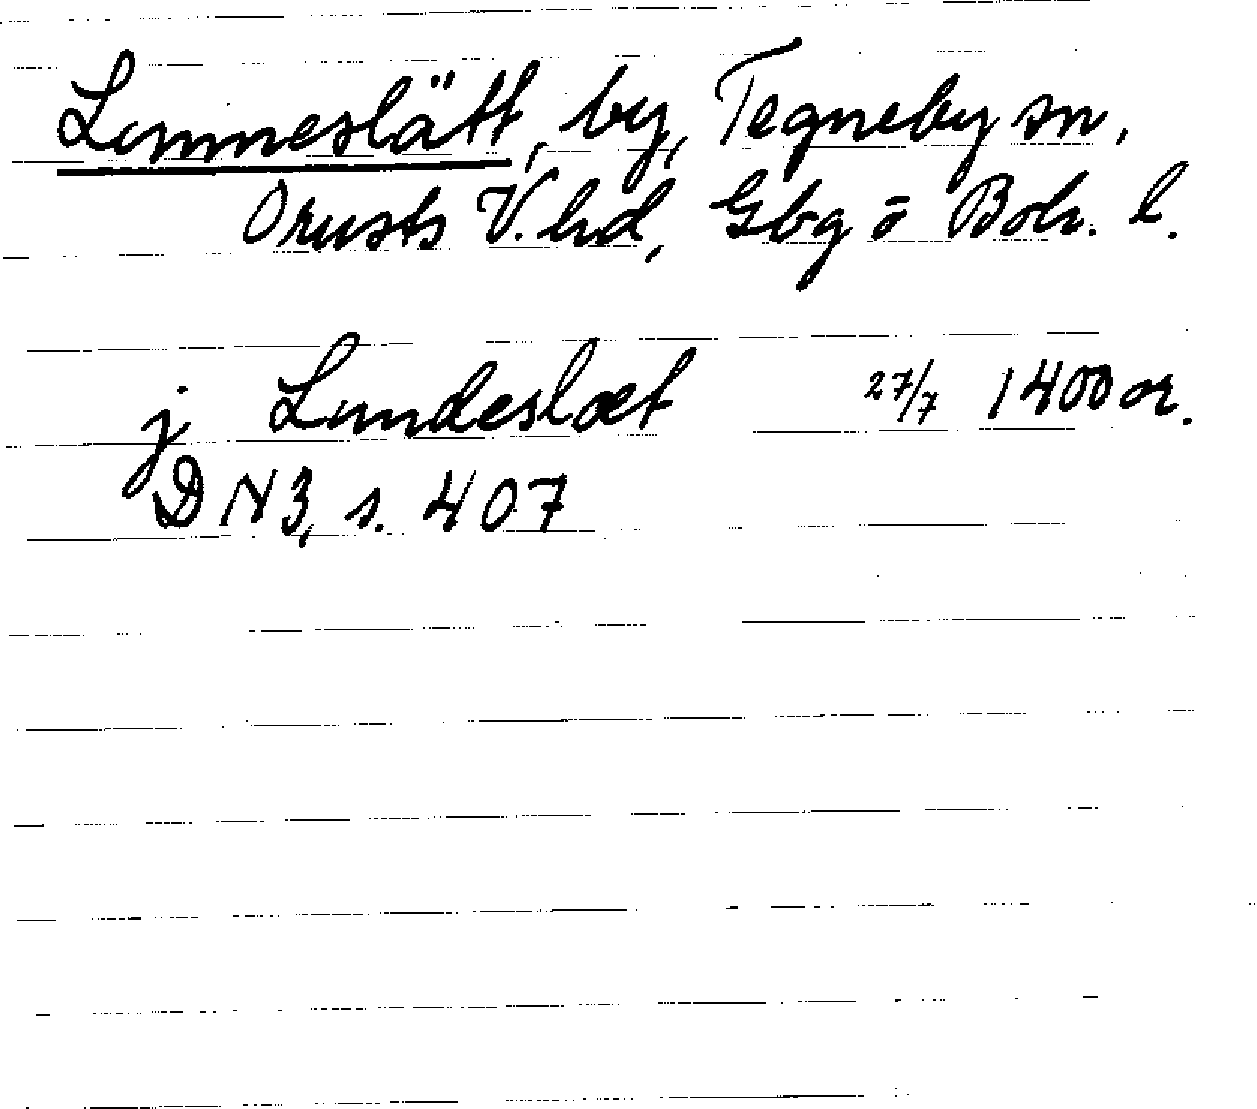 Lunneslätt, by, Tegneby sn,
Orusts V. hd, Gbg o Boh. l.
j Lundeslæt 27/7 1400 or.
DN 3, s. 407